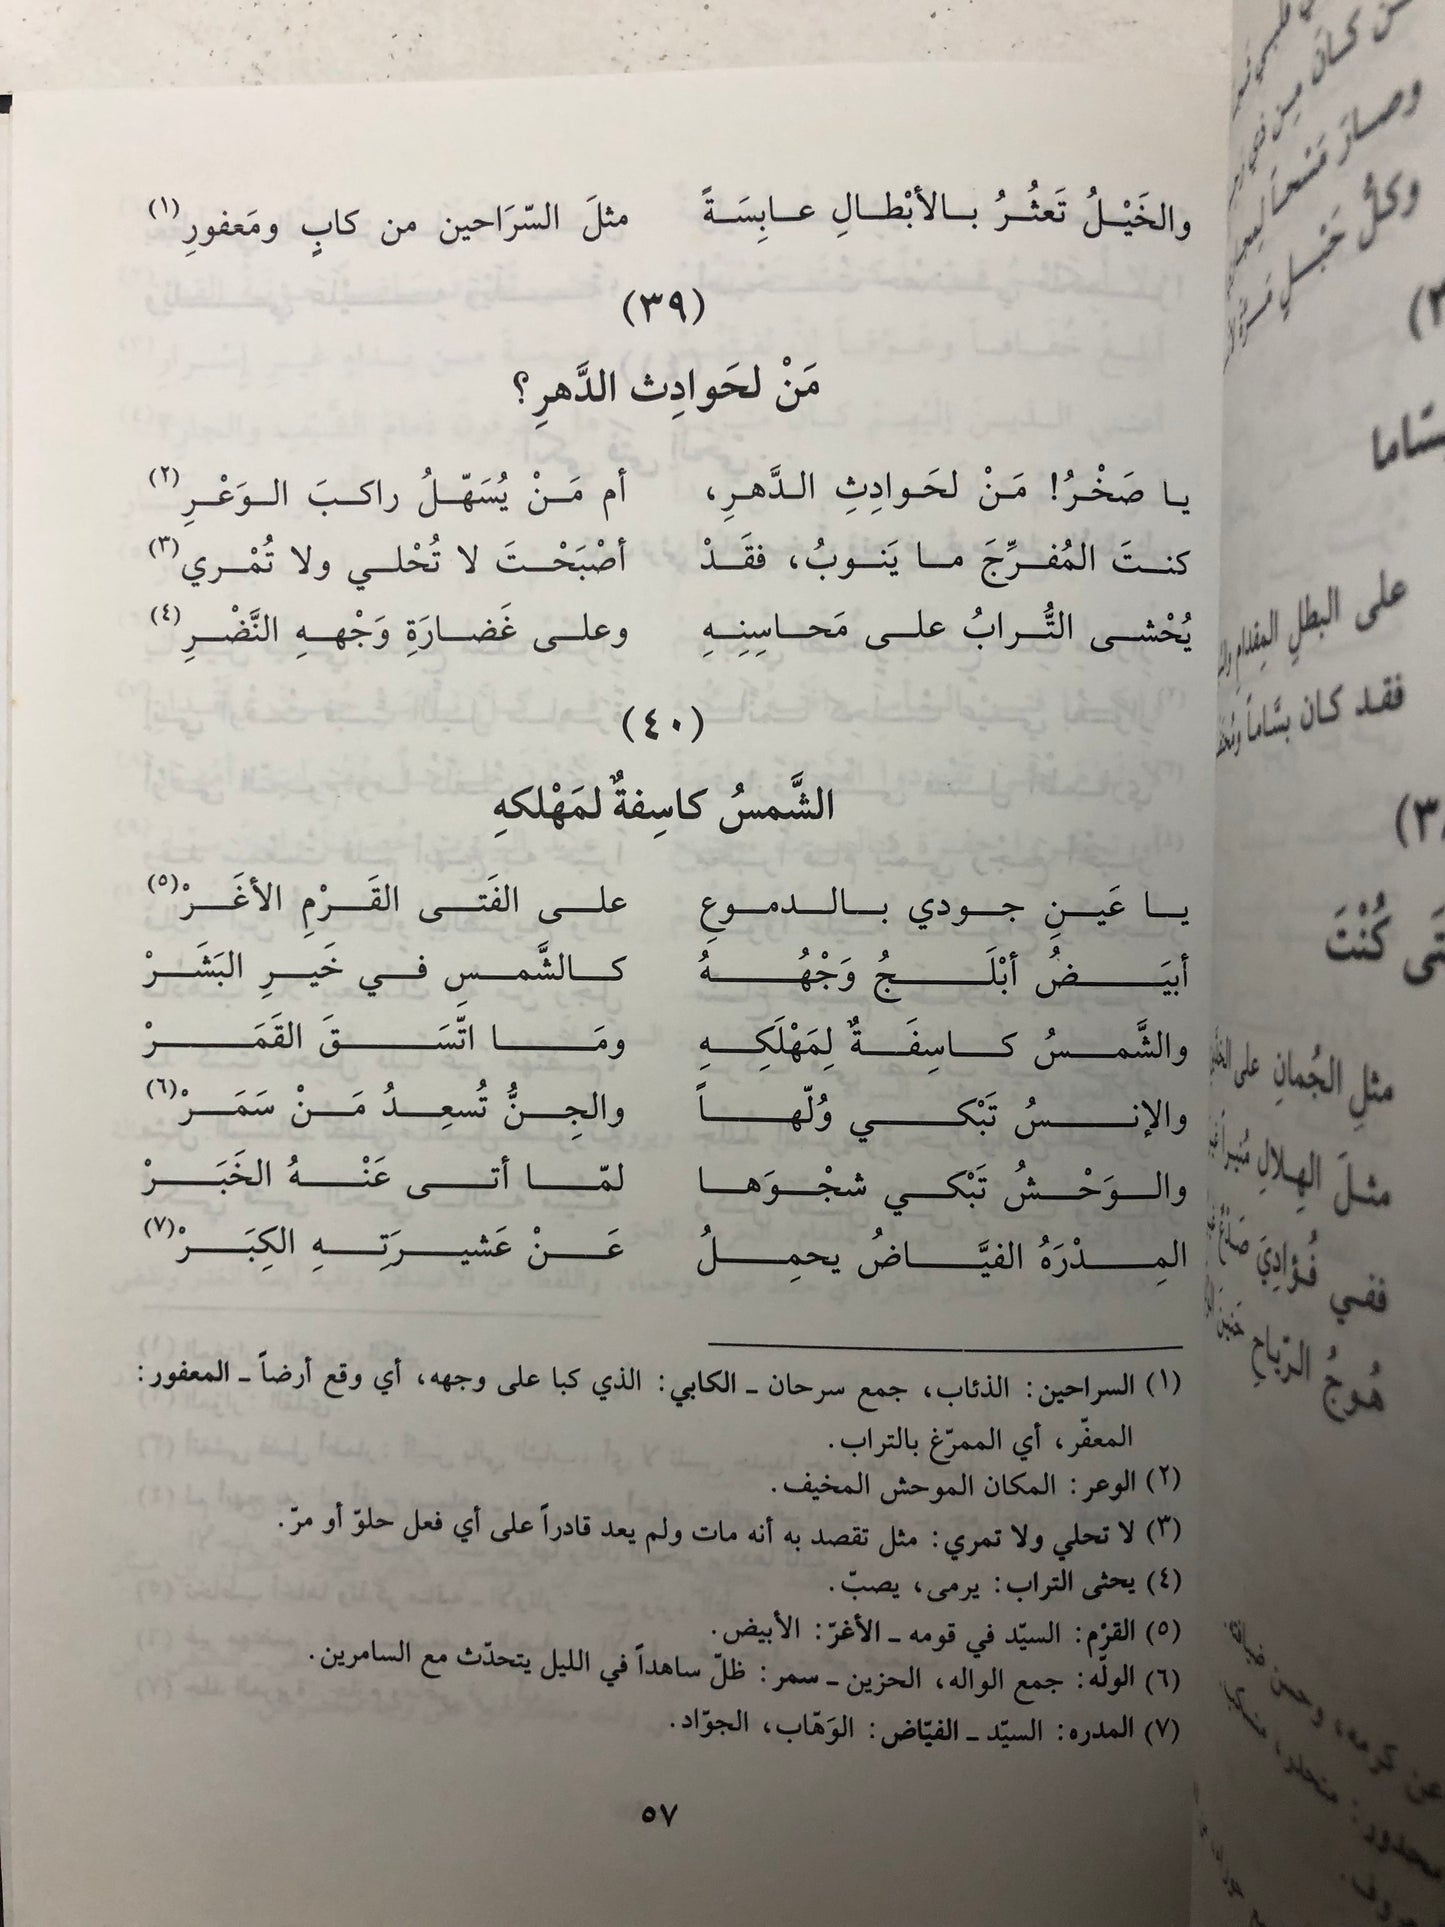 والخَيْلُ تَعثُرُ بالأبْطالِ عابِسَةً مثلَ السّرَاحين من كابٍ ومَعفورِ(١)
(٣٩)
مَنْ لحَوادِث الدَّهرِ؟
يا صَخْرُ! مَنْ لحَوادِثِ الدَّهرِ، أم مَنْ يُسَهّلُ راكبَ الوَعْرِ(٢)
كنتَ المُفرِّجَ ما يَنوبُ، فقَدْ أصْبَحْتَ لا تُحْلي ولا تُمْري(٣)
يُحْثى التُّرابُ على مَحاسِنِهِ وعلى غَضارَةِ وَجْههِ النَّضْرِ(٤)
(٤٠)
الشَّمسُ كاسِفةٌ لمَهْلكهِ
يا عَينِ جودي بالدموعِ على الفَتى القَرْمِ الأغَرْ(٥)
أبيَضُ أبْلَجُ وَجْهُهُ كالشَّمسِ في خَيرِ البَشَرْ
والشَّمسُ كاسِفَةٌ لِمَهْلَكِهِ ومَا اتّسَقَ القَمَرْ
والإنسُ تَبْكي وُلّهاً والجِنُّ تُسعِدُ مَنْ سَمَرْ(٦)
والوَحْشُ تَبْكي شجْوَها لمّا أتى عَنْهُ الخَبَرْ
المِدْرَهُ الفيَّاضُ يحمِلُ عَنْ عَشيرَتِهِ الكِبَرْ(٧)
(١) السراحين: الذئاب، جمع سرحان ـ الكابي: الذي كبا على وجهه، أي وقع أرضاً ـ المعفور:
المعفّر، أي الممرّغ بالتراب.
(٢) الوعر: المكان الموحش المخيف.
(٣) لا تحلي ولا تمري: مثل تقصد به أنه مات ولم يعد قادراً على أي فعل حلوّ أو مرّ.
(٤) يحثى التراب: يرمى، يصبّ.
(٥) القرْم: السيّد في قومه ـ الأغرّ: الأبيض.
(٦) الولّه: جمع الواله، الحزين ـ سمر: ظلّ ساهداً في الليل يتحدّث مع السامرين.
(٧) المدره: السيّد ـ الفيّاض: الوَهّاب، الجوّاد.
٥٧
وصارَ
وكلُّ حَبلٍ
على البطلِ المِقدامِ
فقد كان بسَّاماً
كُنْتَ
مثلِ الجُمانِ على
مثلَ الهِلالِ مُنيراً
ففي فُؤادِيَ صَدْعٌ
هُوجُ الرّياحِ حَنينَ